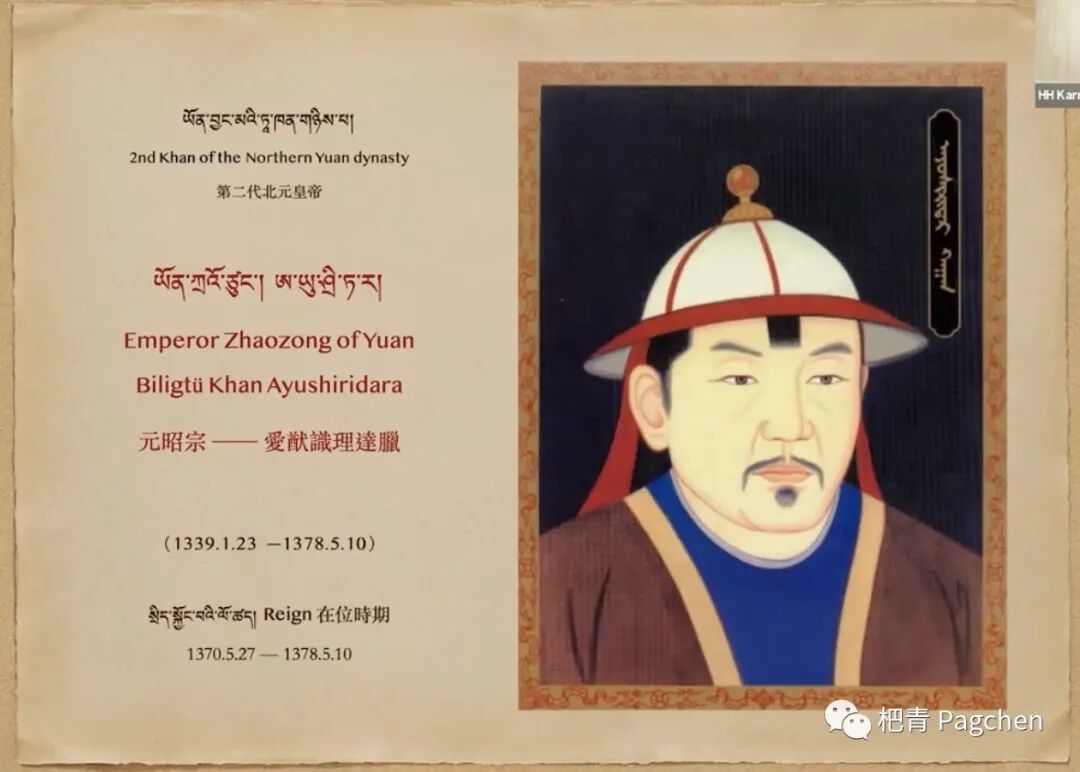 ཡོན་བྱང་མའི་ཏཱ་ཁན་གཉིས་པ།
2nd Khan of the Northern Yuan dynasty
第二代北元皇帝
ཡོན་ཀྲའོ་ཙུང་། ཨ་ཡུ་ཤྲི་ཏ་ར།
Emperor Zhaozong of Yuan
Biligtü Khan Ayushiridara
元昭宗 —— 愛猷識理達臘
（1339.1.23 —1378.5.10）
སྲིད་སྐྱོང་བའི་ལོ་ཚད། Reign 在位時期
1370.5.27 — 1378.5.10
HH Karm
杷青 Pagchen